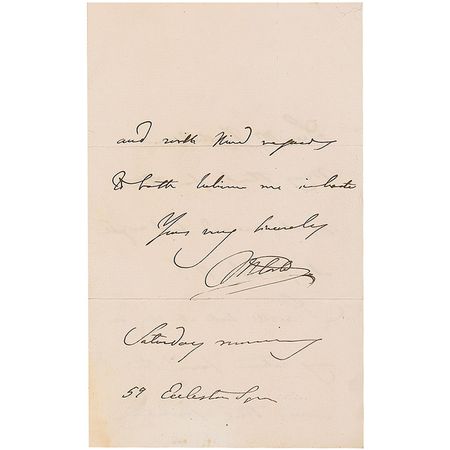 and with kind regards
to both believe me in haste
Yours very sincerely
Saturday morning
59 Eccleston Sqre